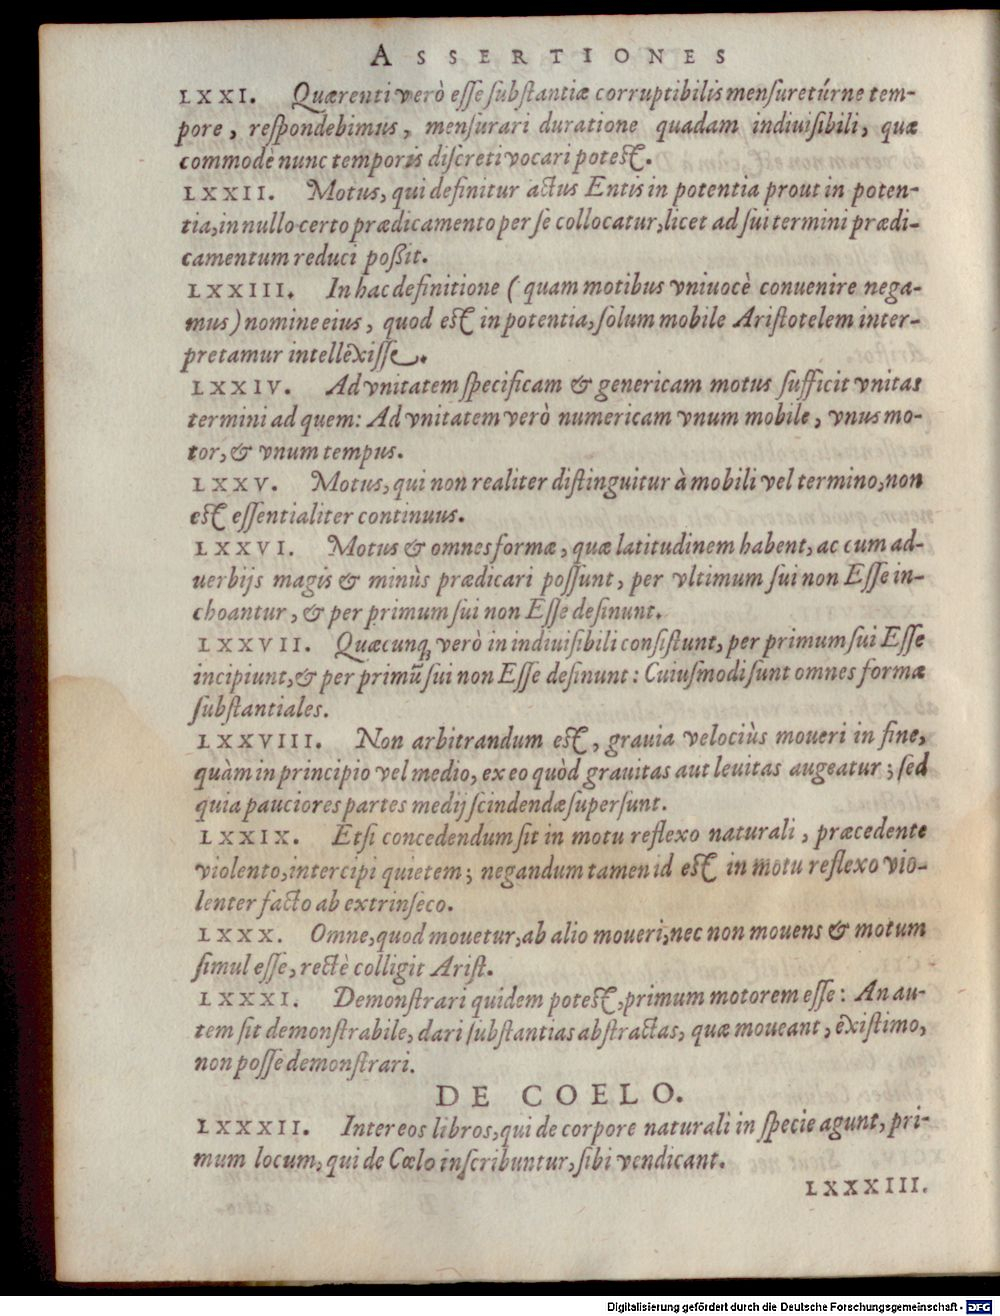 ASSERTIONES
LXXI. Quærenti verò eſſe ſubſtantiæ corruptibilis menſuretúrne tem-
pore, reſpondebimus, menſurari duratione quadam indiuiſibili, quæ
commodè nunc temporis diſcreti vocari poteſt.
LXXII. Motus, qui definitur actus Entis in potentia prout in poten-
tia, in nullo certo prædicamento per ſe collocatur, licet ad ſui termini prædi-
camentum reduci poßit.
LXXIII. In hac definitione (quam motibus vniuocè conuenire nega-
mus) nomine eius, quod eſt in potentia, ſolum mobile Ariſtotelem inter-
pretamur intellexiſſe.
LXXIV. Ad vnitatem ſpecificam & genericam motus ſufficit vnitas
termini ad quem: Ad vnitatem verò numericam vnum mobile, vnus mo-
tor, & vnum tempus.
LXXV. Motus, qui non realiter diſtinguitur à mobili vel termino, non
eſt eſſentialiter continuus.
LXXVI. Motus & omnes formæ, quæ latitudinem habent, ac cum ad-
uerbijs magis & minùs prædicari poſſunt, per vltimum ſui non Eſſe in-
choantur, & per primum ſui non Eſſe deſinunt.
LXXVII. Quæcunq; verò in indiuiſibili conſiſtunt, per primum ſui Eſſe
incipiunt, & per primū ſui non Eſſe deſinunt: Cuiuſmodi ſunt omnes formæ
ſubſtantiales.
LXXVIII. Non arbitrandum eſt, grauia velociùs moueri in fine,
quàm in principio vel medio, ex eo quòd grauitas aut leuitas augeatur; ſed
quia pauciores partes medij ſcindendæ ſuperſunt.
LXXIX. Etſi concedendum ſit in motu reflexo naturali, præcedente
violento, intercipi quietem; negandum tamen id eſt in motu reflexo vio-
lenter facto ab extrinſeco.
LXXX. Omne, quod mouetur, ab alio moueri, nec non mouens & motum
ſimul eſſe, rectè colligit Ariſt.
LXXXI. Demonſtrari quidem poteſt, primum motorem eſſe: An au-
tem ſit demonſtrabile, dari ſubſtantias abſtractas, quæ moueant, exiſtimo,
non poſſe demonſtrari.
DE COELO.
LXXXII. Inter eos libros, qui de corpore naturali in ſpecie agunt, pri-
mum locum, qui de Cœlo inſcribuntur, ſibi vendicant.
LXXXIII.
Digitalisierung gefördert durch die Deutsche Forschungsgemeinschaft - DFG